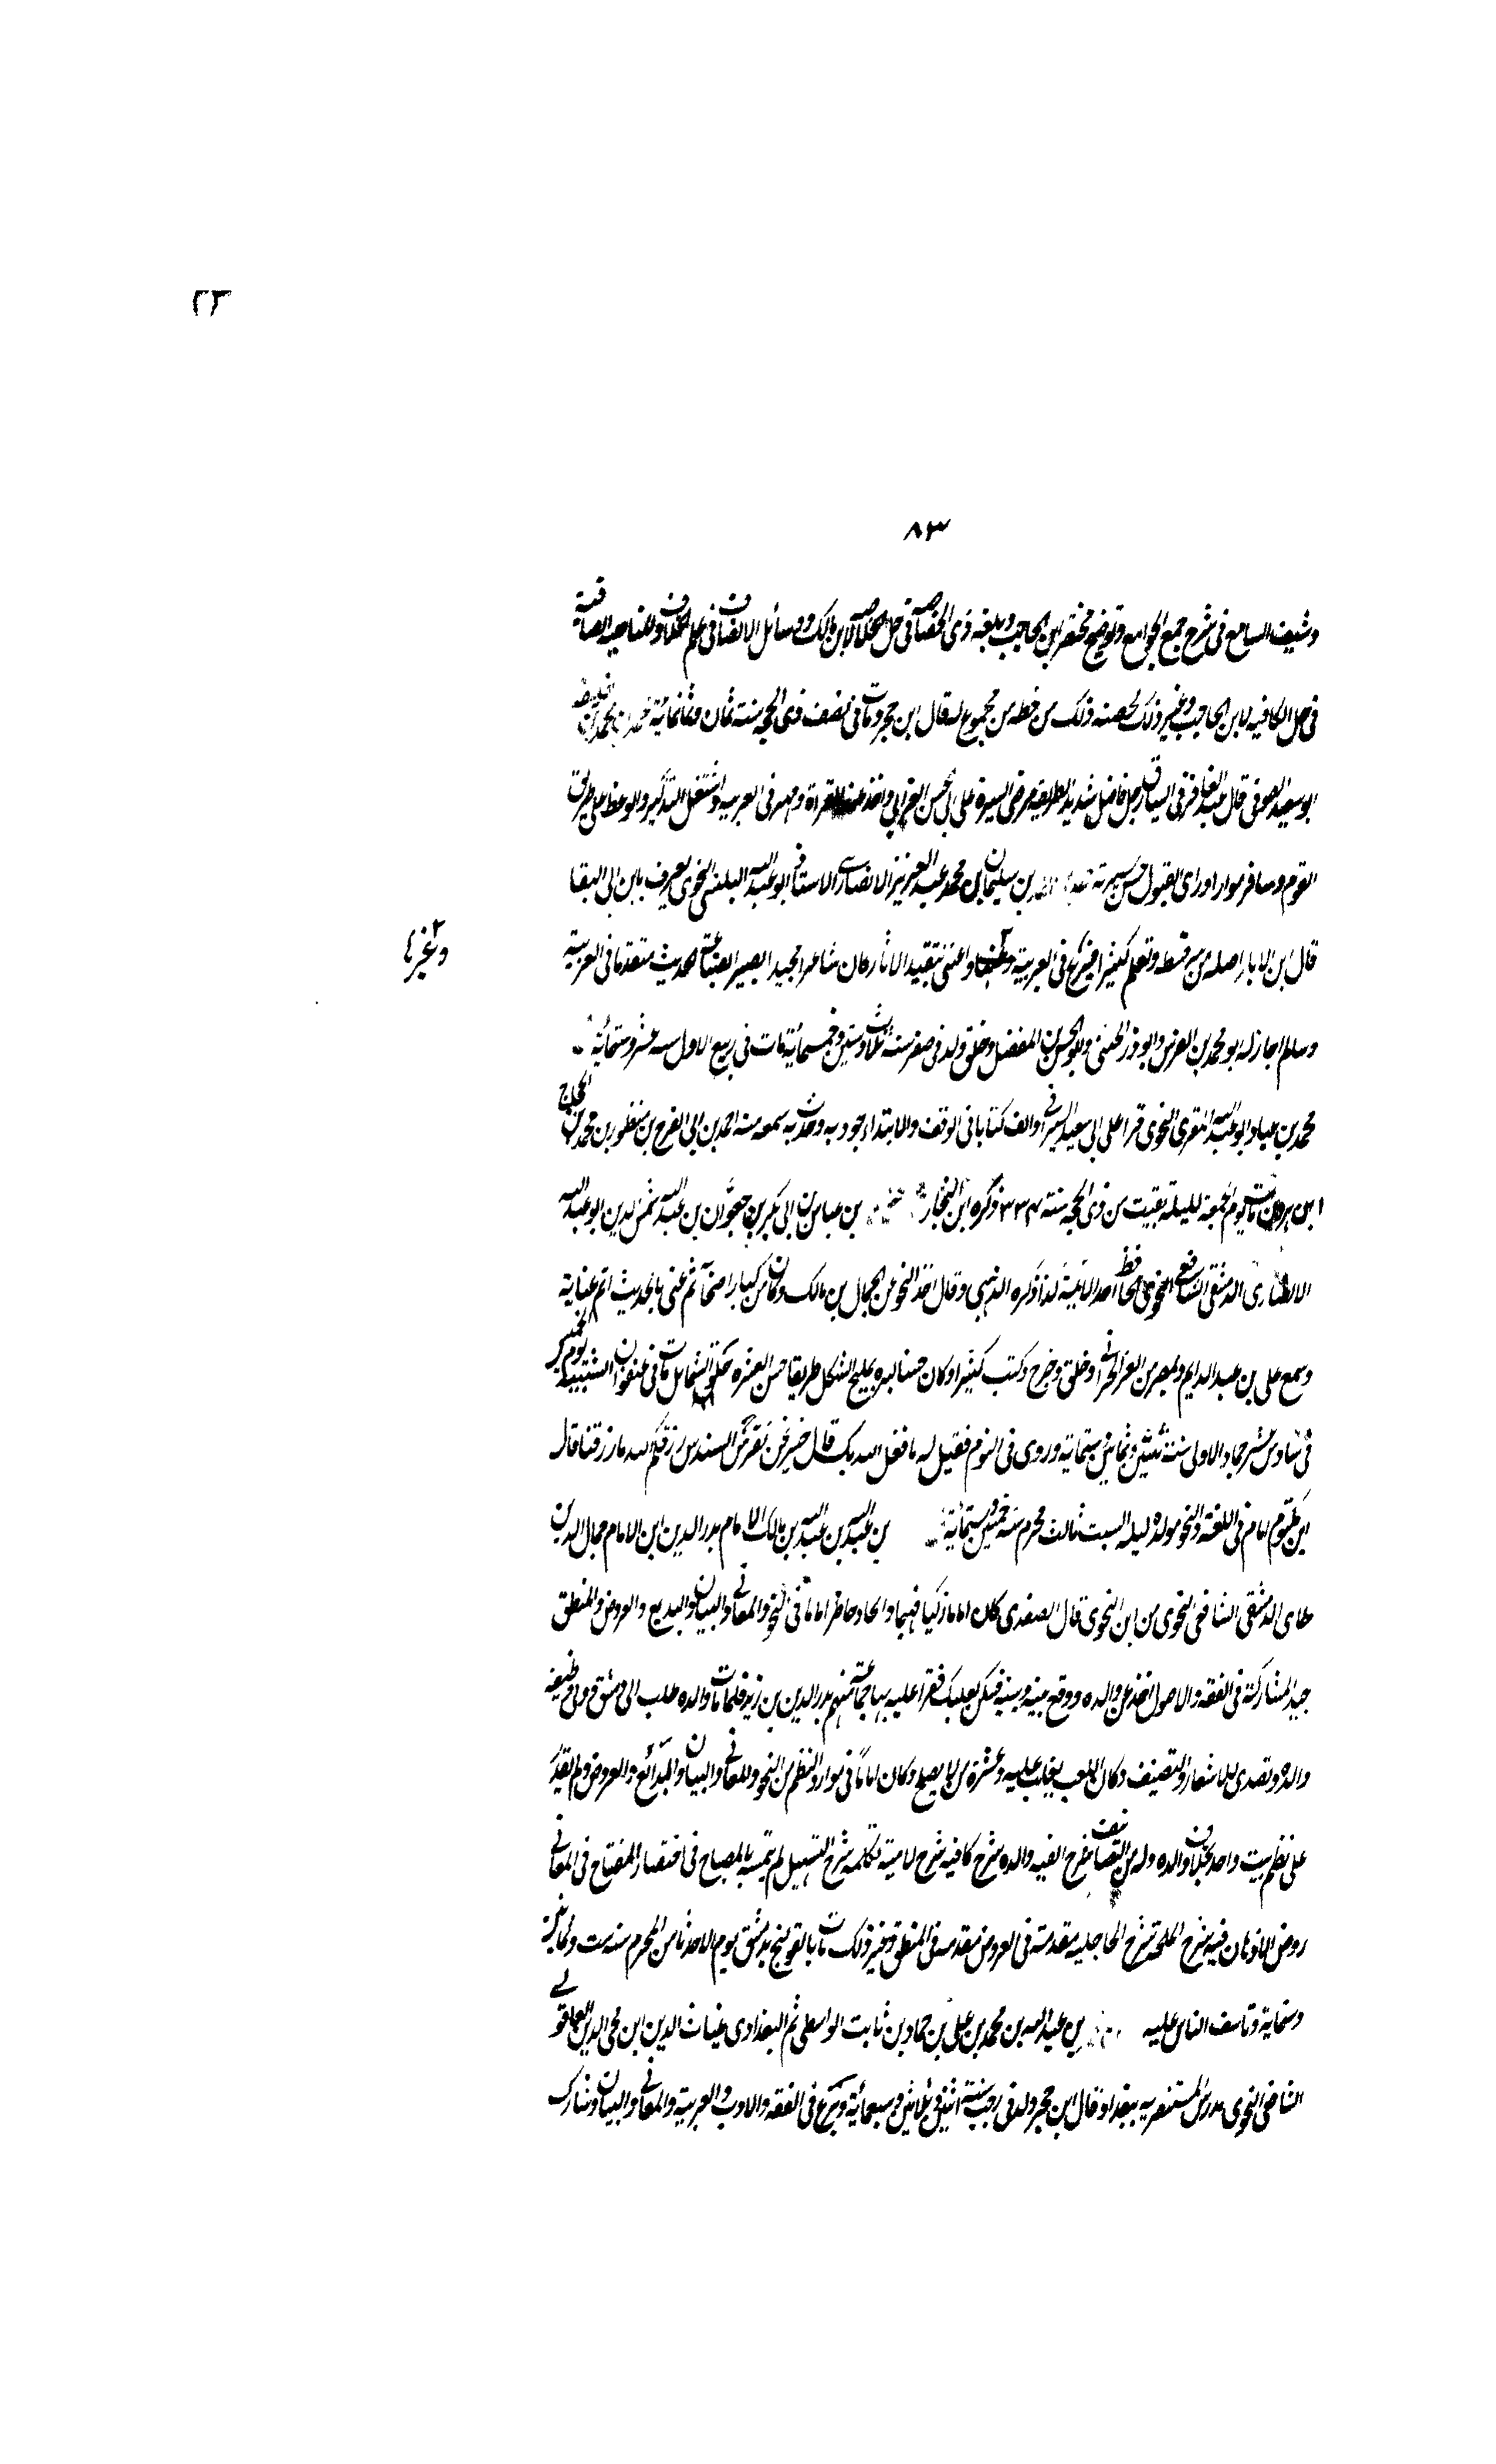 ٢٣
٨٣
وتشنيف السامع فى شرح جمع الجوامع وتوضيح مختصر ابن الحاجب وبلغة ذى الخصاصة فى حل الخلاصة لابن مالك ووسائل الانصاف فى علم الخلاف
فى حل الكافيه لابن الحاجب وغير ذلك لخصته ذلك من خطه من مجموع له قال ابن حجر ومات فى نصف ذى الحجه سنة ثمان وثمانمائة محمد بن محمد بن
ابو سعيد الصوفى قال عبد الغافر فى السياق رجل فاضل شديد الطريقه مرضى السيرة على ابى الحسن الغزالى واخذ عنه القراة ومهر فى العربيه واشتغل بالتذكير والوعظ على طريق
القوم وسافر مرارا وراى القبول حسن سيرته بن سليمان بن محمد عبد العزيز الانصارى الاستاذ ابو عبد الله البلنسى النحوى يعرف بابن ابى البقا
قال ابن الابار اصله من سرقسطه وتعلم كثيرا فبرع فى العربية واعتنى بتقييد الاثار وكان شاعرا مجيدا بصير الصناعة الحديث متقدما فى العربية
وغيرها
وسلم اجاز له ابو محمد بن الفرس وابو ذر الخشنى وابو الحسن بن المفضل وخلق ولد فى صفر سنة ثلاث وستين وخمسمائة مات فى ربيع الاول سنه عشر وستمائة
محمد بن عباد ابو عبد الله المقرى النحوى قرا على ابى سعيد السيرافى والف كتابا فى الوقف والابتداء جود به وحدث به سمعه منه احمد بن ابى الفرج بن منظور بن محمد بن الحجاج
ابن مات يوم الجمعة لليلة بقيت من ذى الحجه سنة ٣٣٤ ذكره ابن النجار بن عباس بن ابى بكر بن جعوان بن عبد الله شمس الدين ابو عبد الله
الانصارى الدمشقى الشافعى النحوى الحافظ احد الائمة كذا ذكره الذهبى وقال اخذ النحو عن الجمال بن مالك وكان من كبار اصحابه ثم عنى بالحديث اتم عناية
وسمع على بن عبد الدايم وبمصر من العز الحرانى وخلق وخرج وكتب كثيرا وكان حسنا لبره مليح الشكل ظريفا حسن العشره حلو الشمائل مات فى عنفوان الشبيبه يوم الخميس
فى سادس عشر جماد الاولى سنة ثنتين وثمانين وستمائة وروى فى النوم فقيل له ما فعل الله بك قال خير نحن نفرش السندس رزقكم الله ما رزقنا قال
ابن مكتوم امام فى اللغة والنحو مولده ليلة السبت ثالث محرم سنة خمسين وستمائة بن عبد الله بن عبد الله بن مالك الامام بدر الدين ابن الامام جمال الدين
طاى الدمشقى الشافعى النحوى من ابن النحوى قال الصفدى كان اماما زكيا فهيما حاد الخاطر اماما فى النحو والمعانى والبيان والبديع والعروض والمنطق
جيد المشاركة فى الفقه والاصول اخذ عن والده ووقع بينه وبينه فسكن بعلبك فقرا عليه بها جماعة منهم بدر الدين بن زيد فلما مات والده طلب الى دمشق وولى وظيفة
والده وتصدى للاشغال والتصنيف وكان اللعب يغلب عليه وعشرة من لا يصلح وكان اماما فى موارد النظم من النحو والمعانى والبيان والبدائع والعروض ولم يقدر
على نظم بيت واحد بخلاف والده وله من التصانيف شرح الفيه والده شرح كافيه شرح لامية تكلمه شرح التسهيل لم يتمه المصباح فى اختصار المفتاح فى المعانى
روض الاذهان فيه شرح الملحة شرح الحاجبيه مقدمة فى العروض مقدمه فى المنطق وغير ذلك مات بالقولنج بدمشق يوم الاحد ثامن المحرم سنه ست وثمانين
وستماية وتاسف الناس عليه بن عبد الله بن محمد بن على بن حماد بن ثابت الواسطى ثم البغدادى غياث الدين ابن محى الدين العاقولى
الشافعى النحوى مدرس المستنصريه ببغداد قال ابن حجر ولد فى رجب سنة اثنين وثلاثين وسبعمائة وبرع فى الفقه والادب والعربية والمعانى والبيان وشارك